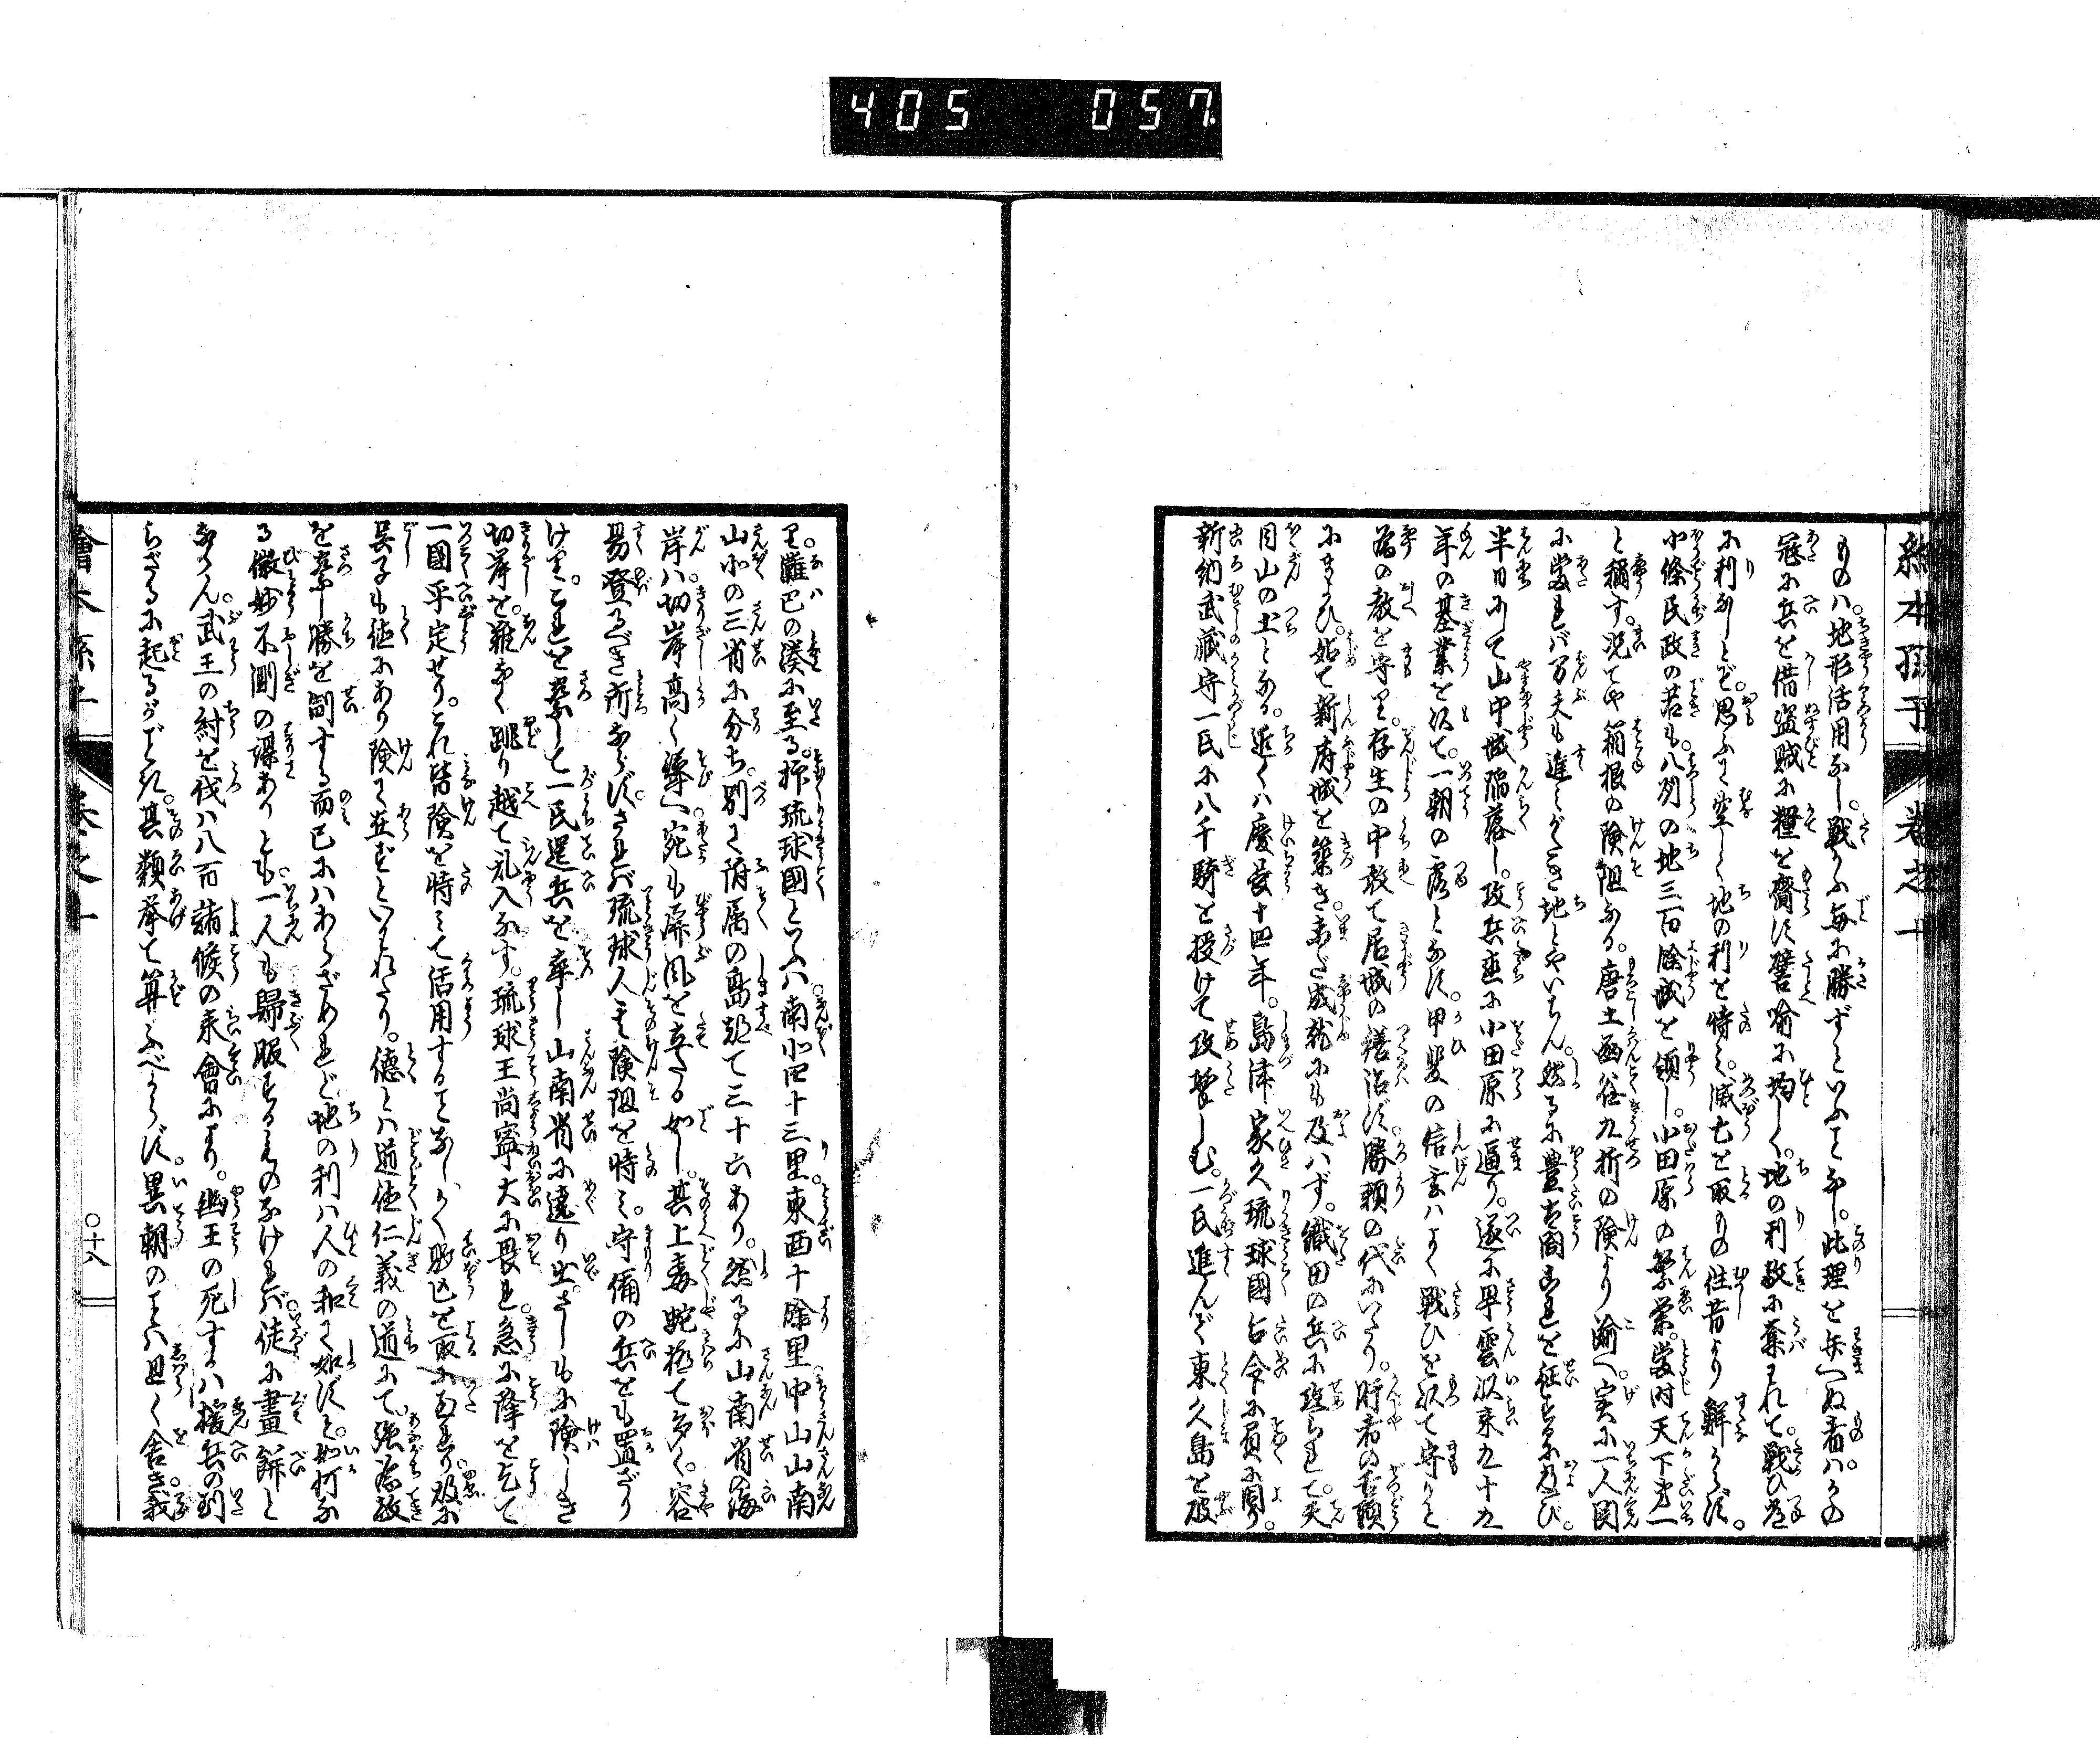 405 057
絵本孫子 巻之十
ものハ。地形活用なし。戦ふ毎に勝ずといふことなし。此理を弁へぬ者ハ。かの
寇に兵を借盗賊に糧を齎す譬喩に均しく。地の利敵に奪れて。戦ひ
に利なしとぞ。思ふて空しく地の利を恃み。滅亡を取もの往昔より鮮からず。
北條氏政の若も。八州の地三百餘城を領し。小田原の繁栄。當時天下第一
と稱す。况てや箱根の険阻ある。唐土函谷九折の険より踰へ。実に一人関
に當れバ万夫も進みがたき地とやいはん。然るに豊太閤これを征するに及び。
半日にして山中城陥落し。攻兵直に小田原に逼り。遂に早雲以来九十九
年の基業を以て。一朝の露となす。甲斐の信玄ハよく戦ひを以て守りと
為の教を守り。存生の中敢て居城の繕治ず勝頼の代にいたり。肝者の舌頭
にまよひ。始て新府城を築き。未だ成就にも及ハず。織田の兵に攻られて。天
目山の土となる。近くハ慶長十四年。島津家久琉球國台令に
新納武蔵守一氏に八千騎を授けて攻撃しむ。一氏進んで東久島を破
り。灘巴の湊に至る。抑琉球國といふハ南北四十三里。東西十餘里中山山南
山北の三省に分ち。別て附属の島都て三十六あり。然るに山南省の海
岸ハ。切岸高く聳へ宛も屏風を立たる如し。其上毒蛇極て多く。容
易登るべき所ならず。されバ琉球人其険阻を恃ミ。守備の兵をも置ざり
けり。これを察して一氏逞兵を率し山南省に遶り出。さしも険しき
切岸を。難なく跳り越て乱入なす。琉球王尚寧大に畏れ。急に降を乞て
一國平定せり。これ皆険を恃ミて活用することなしかく
呉子も徳にあり険に在ずといはれたり。德とハ道徳仁義の道にて。強
を察し勝を制する而已にハあらざめれど地の利ハ人の和に如ずと。如何な
る微妙不測の謀ありとも。一人も歸服するものなけれバ。徒に畫餅と
ならん。武王の紂を伐ハ八百諸候の来會により。幽王の死するハ援兵の到
らざるに起るがごとし。其類挙て算ふべからず。異朝のことハ且く舎き我
繪本孫子 巻之十
〇十八